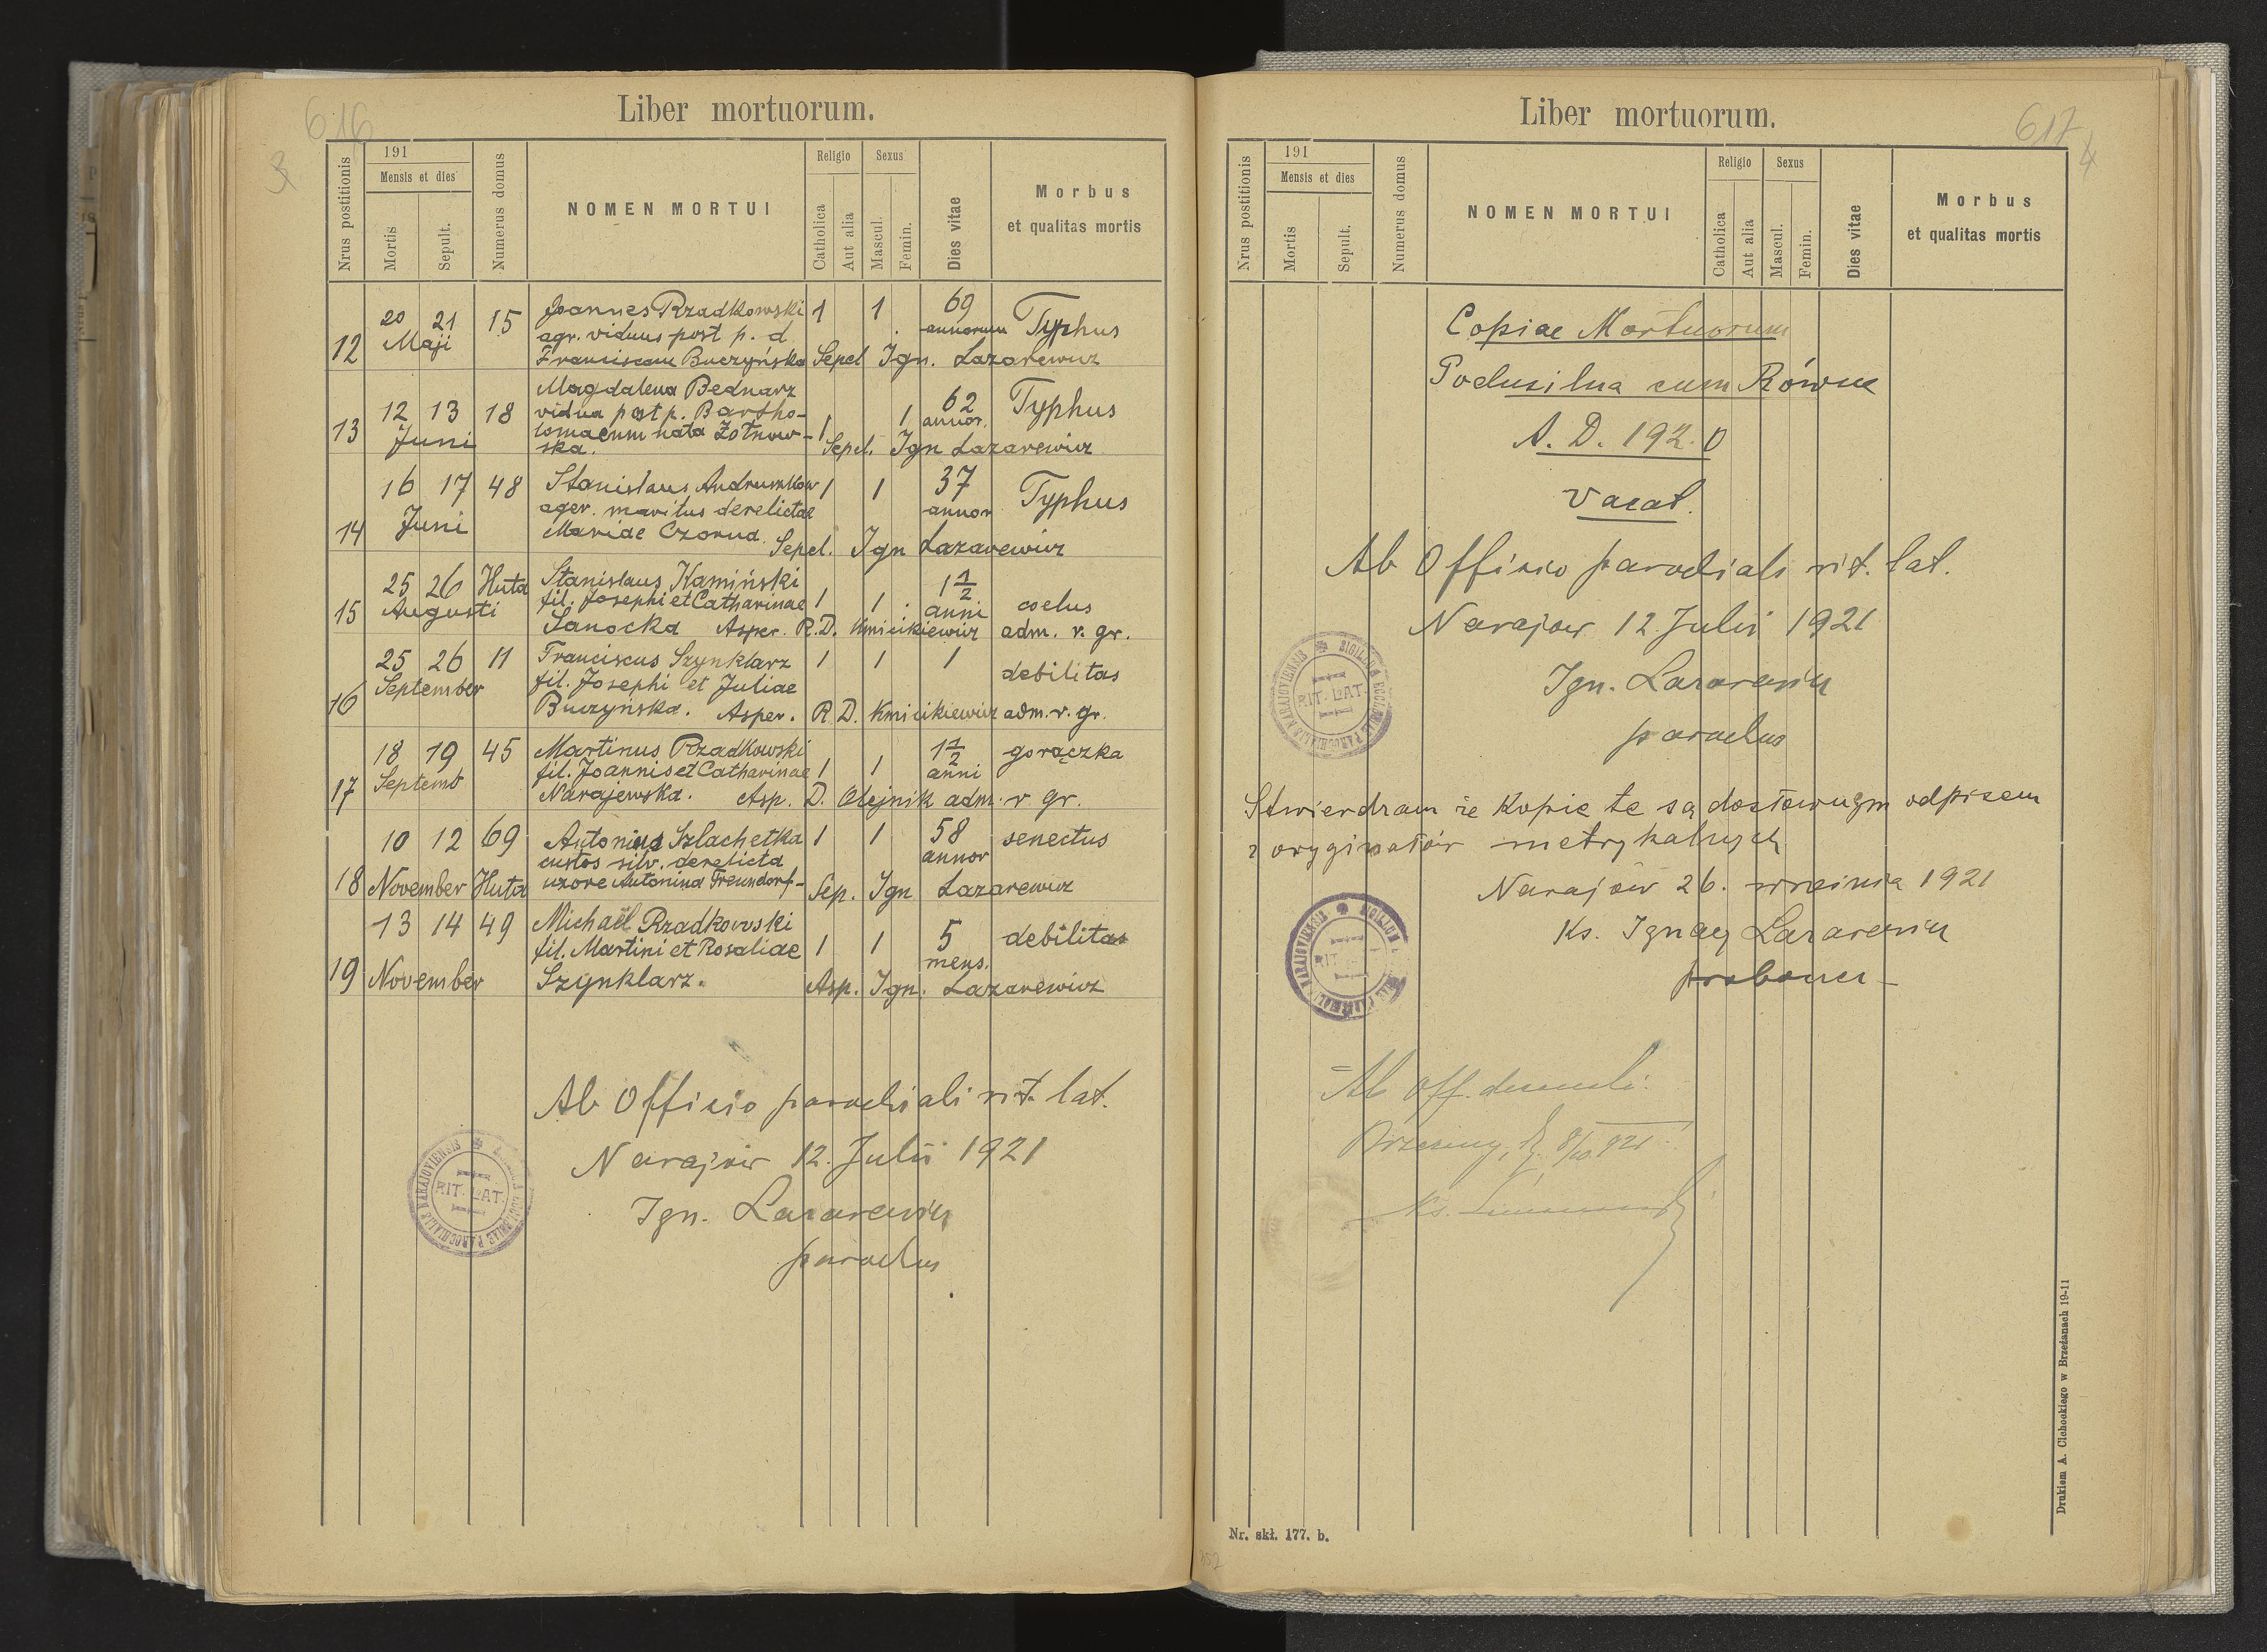 616
3
Liber mortuorum.
Nrus postitionis
191
Mensis et dies
Mortis
Sepult.
Numerus domus
NOMEN MORTUI
Religio
Catholica
Aut alia
Sexus
Mascul.
Femin.
Dies vitae
Morbus
et qualitas mortis
12 20 21 Maji 15 Joannes Rzadkowski 1 1 69 annorum Typhus
agr. viduus post p. d.
Franciscam Buczyńska Sepel Ign. Lazarewicz
13 12 13 Juni 18 Magdalena Bednarz 1 1 62 annor. Typhus
vidua post p. Bartho-
lomaeum nata Żotnow-
ska. Sepel. Ign Lazarewicz
14 16 17 Juni 48 Stanislaus 1 1 37 annor Typhus
ager. maritus derelictae
Mariae Czorna. Sepel. Ign Lazarewicz
15 25 26 Augusti Huta Stanislaus Kamiński 1 1 1 1/2 anni
fil. Josephi et Catharinae
Sanocka Asper. R. D. Kmicikiewicz adm. r. gr.
16 25 26 September 11 Franciscus Szynklarz 1 1 1 debilitas
fil. Josephi et Juliae
Buczyńska. Asper. R. D. Kmicikiewicz adm. r. gr.
17 18 19 Septemb 45 Martinus Rzadkowski 1 1 1 1/2 anni gorączka
fil. Joannis et Catharinae
Narajewska. Asp. D. Olejnik adm. r gr.
18 10 12 November 69 Huta Antonius Szlachetka 1 1 58 annor senectus
custos silv. derelicta
uxore Antonina Freundorf- Sep. Ign Lazarewicz
19 13 14 November 49 Michaël Rzadkowski 1 1 5 mens. debilitas
fil. Martini et Rosaliae
Szynklarz. Asp. Ign. Lazarewicz
Ab Officio parochiali rit. lat.
Narajow 12. Julii 1921
Ign. Lazarewicz
parochus
RIT. LAT.
617
4
Liber mortuorum.
Nrus postitionis
191
Mensis et dies
Mortis
Sepult.
Numerus domus
NOMEN MORTUI
Religio
Catholica
Aut alia
Sexus
Mascul.
Femin.
Dies vitae
Morbus
et qualitas mortis
Copiae Mortuorum
Podusilna cum Równe
A. D. 1920
vacat.
Ab Officio parochiali rit. lat.
Narajow 12. Julii 1921
Ign. Lazarewicz
parochus
RIT. LAT.
Stwierdzam że Kopie te są dosłownym odpisem
z oryginałów metrykalnych
Narajów 26. września 1921
Ks. Ignacy Lazarewicz
proboszcz
Ab off.
Nr. skł. 177. b.
Drukiem A. Cichockiego w Brzeżanach 19-11
352